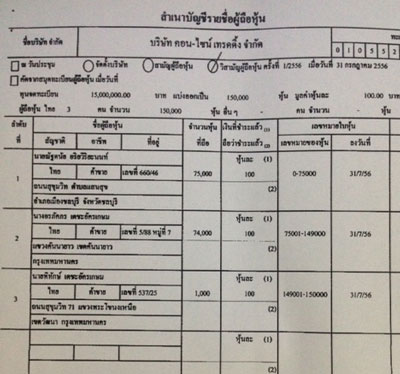 สำเนาบัญชีรายชื่อผู้ถือหุ้น
ชื่อบริษัท จำกัด บริษัท คอน-ไซน์ เทรดดิ้ง จำกัด 0 1 0 5 5 2
ณ วันประชุม จัดตั้งบริษัท สามัญผู้ถือหุ้น วิสามัญผู้ถือหุ้น ครั้งที่ 1/2556 เมื่อวันที่ 31 กรกฎาคม 2556
คัดจากสมุดทะเบียนผู้ถือหุ้น เมื่อวันที่
ทุนจดทะเบียน 15,000,000.00 บาท แบ่งออกเป็น 150,000 หุ้น มูลค่าหุ้นละ 100.00 บาท
ผู้ถือหุ้น ไทย 3 คน จำนวน 150,000 หุ้น อื่น ๆ - คน จำนวน - หุ้น
ลำดับที่ ชื่อผู้ถือหุ้น จำนวนหุ้นที่ถือ เงินที่ชำระแล้ว (1) ถือว่าชำระแล้ว (2) เลขหมายใบหุ้น
สัญชาติ อาชีพ ที่อยู่ เลขหมายของหุ้น ลงวันที่
หุ้นละ (1)
1 ไทย ค้าขาย เลขที่ 660/46 75,000 100 0-75000 31/7/56
ถนนสุขุมวิท ตำบลแสนสุข (2)
อำเภอเมืองชลบุรี จังหวัดชลบุรี
เตชะอัครเกษม หุ้นละ (1)
2 ไทย ค้าขาย เลขที่ 5/88 หมู่ที่ 7 74,000 100 75001-149000 31/7/56
แขวงคันนายาว เขตคันนายาว (2)
กรุงเทพมหานคร
นายพิทักษ์ เตชะอัครเกษม หุ้นละ (1)
3 ไทย ค้าขาย เลขที่ 537/25 1,000 100 149001-150000 31/7/56
ถนนสุขุมวิท 71 แขวงพระโขนงเหนือ (2)
เขตวัฒนา กรุงเทพมหานคร
หุ้นละ (1)
(2)